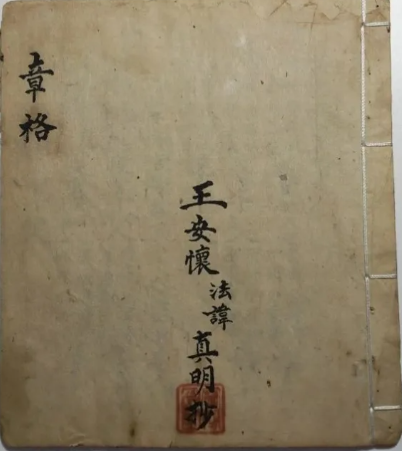 章格
王安懷法諱真明抄